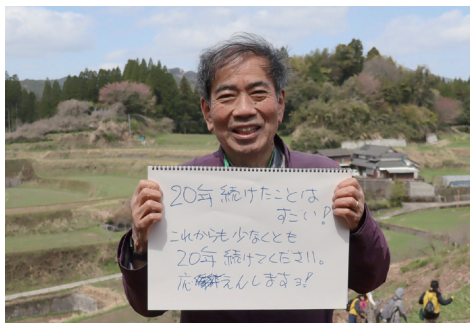 20年 続けたことは
すごい!
これからも 少なくとも
20年 続けてください。
応えんしますョ!